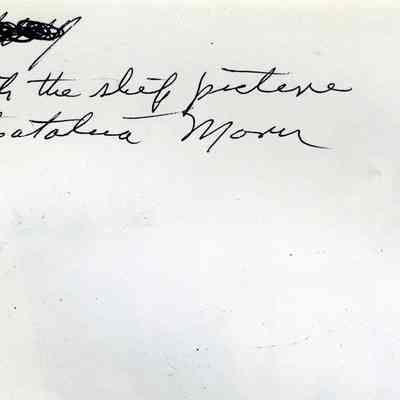 h the ship picture
Catalina Moru